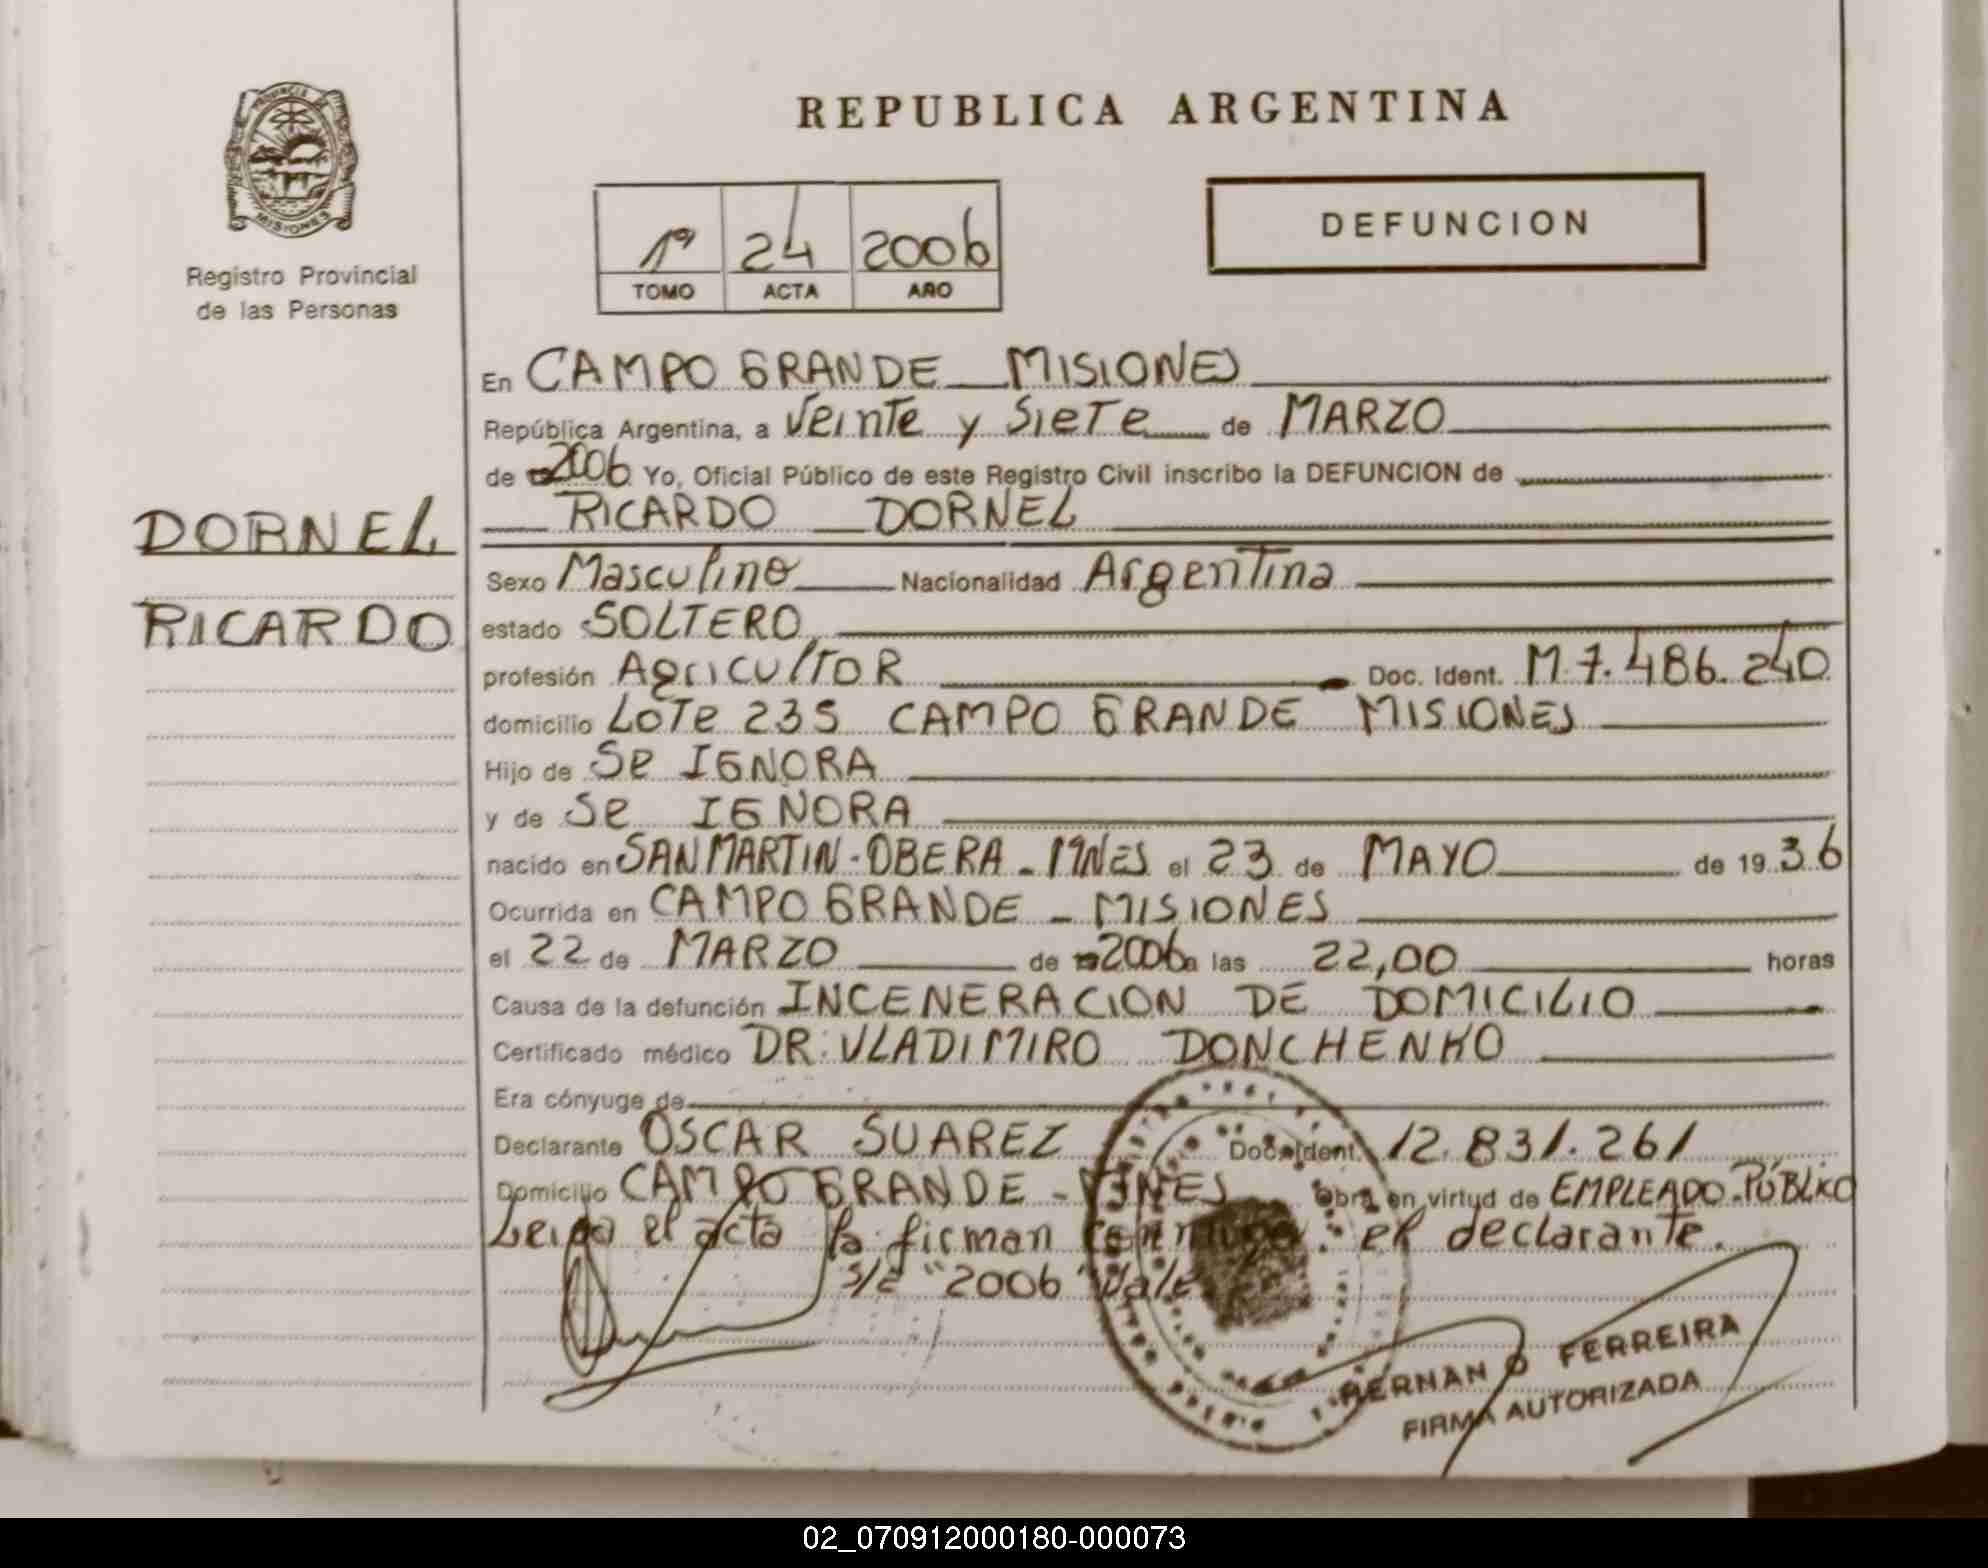 PROVINCIA DE
MISIONES
Registro Provincial
de las Personas
REPUBLICA ARGENTINA
1º 24 2006
TOMO ACTA AÑO
DEFUNCION
En CAMPO GRANDE MISIONES
República Argentina, a Veinte y Siete de MARZO
de 2006 Yo, Oficial Público de este Registro Civil inscribo la DEFUNCION de
RICARDO DORNEL
DORNEL
RICARDO
Sexo Masculino Nacionalidad Argentina
estado SOLTERO
profesión Agricultor Doc. Ident. M.7.486.240
domicilio Lote 235 CAMPO GRANDE MISIONES
Hijo de Se IGNORA
y de Se IGNORA
nacido en SAN MARTIN-OBERA-MNES el 23 de MAYO de 1936
Ocurrida en CAMPO GRANDE - MISIONES
el 22 de MARZO de 2006 a las 22,00 horas
Causa de la defunción INCENERACION DE DOMICILIO
Certificado médico DR: VLADIMIRO DONCHENKO
Era cónyuge de
Declarante OSCAR SUAREZ Doc. Ident. 12.831.261
Domicilio CAMPO GRANDE - MNES obra en virtud de EMPLEADO-PÚBLICO
Leida el acta la firman conmigo: el declarante.
S/E "2006" Vale
HERNAN O FERREIRA
FIRMA AUTORIZADA
02_070912000180-000073